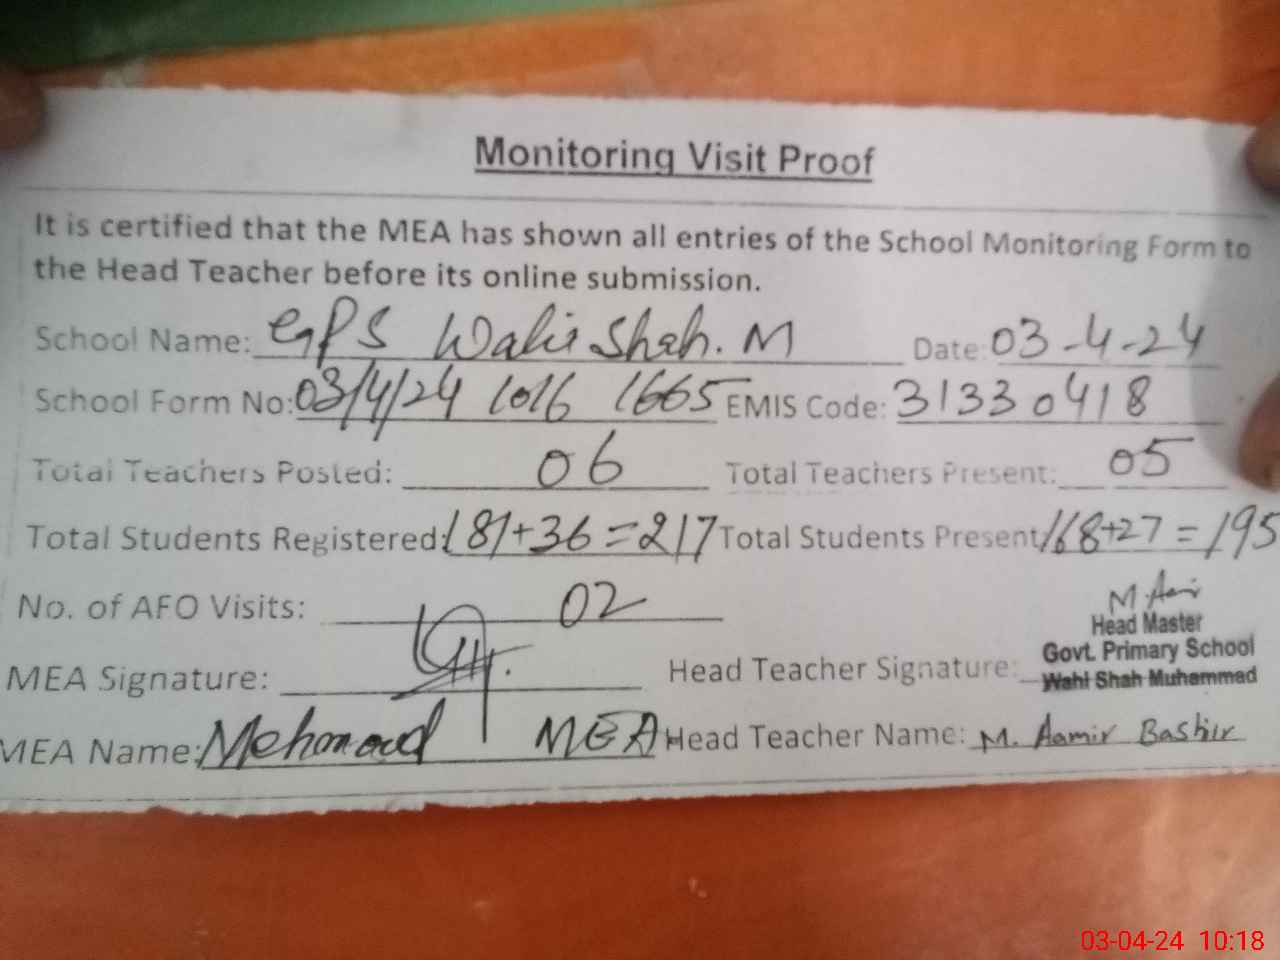 Monitoring Visit Proof
It is certified that the MEA has shown all entries of the School Monitoring Form to
the Head Teacher before its online submission.
School Name: GPS Wahi Shah. M Date: 03-4-24
School Form No: 03/4/24 1016 1665 EMIS Code: 31330418
Total Teachers Posted: 06 Total Teachers Present: 05
Total Students Registered: 181+36=217 Total Students Present 168+27=195
No. of AFO Visits: 02
M. Amir
Head Master
Govt. Primary School
MEA Signature: Head Teacher Signature: Wahi Shah Muhammad
MEA Name: Mehmood MEA Head Teacher Name: M. Aamir Bashir
03-04-24 10:18